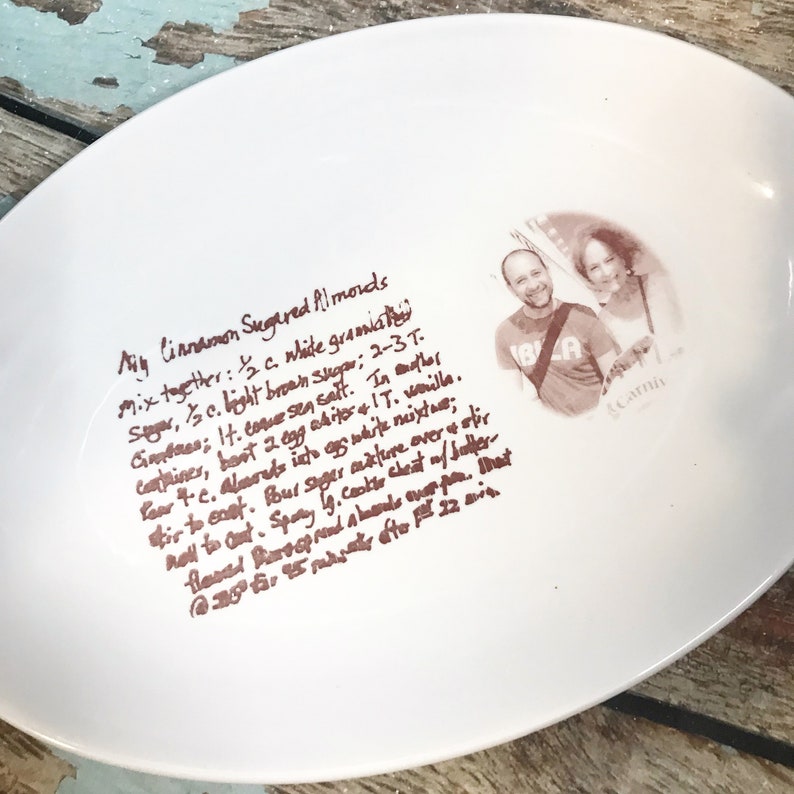 My Cinnamon Sugared Almonds
Mix together: 1/2 c. white granulated
sugar, 1/2 c. light brown sugar; 2-3 T.
cinnamon; 1 t. coarse sea salt. In another
container, beat 2 egg whites & 1 T. vanilla.
Pour 4 c. almonds into egg white mixture;
stir to coat. Pour sugar mixture over & stir
well to coat. Spray lg. cookie sheet w/ butter-
flavored spread almonds over pan.
@ for 45 minutes after 22 min.
IBIZA
Carniv